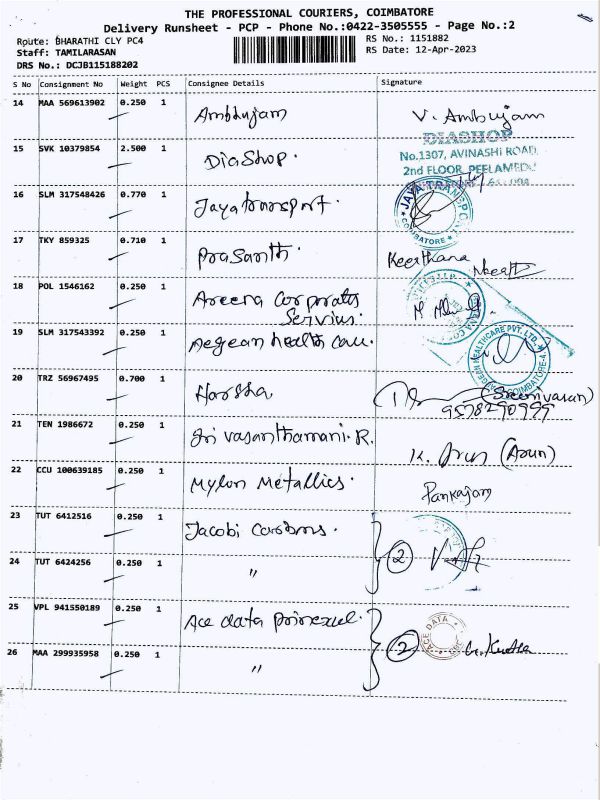 THE PROFESSIONAL COURIERS, COIMBATORE
Delivery Runsheet - PCP - Phone No.:0422-3505555 - Page No.:2
Route: BHARATHI CLY PC4 RS No.: 1151882
Staff: TAMILARASAN RS Date: 12-Apr-2023
DRS No.: DCJB115188202
S No Consignment No Weight PCS Consignee Details Signature
14 MAA 569613902 0.250 1 Ambhujam V. Ambujam
DIASHOP
15 SVK 10379854 2.500 1 DiaShop. No.1307, AVINASHI ROAD,
2nd FLOOR, PEELAMEDU
16 SLM 317548426 0.770 1 Jayatransport. JAYA TRANSPORT COIMBATORE
17 TKY 859325 0.710 1 Prasanth. Keerthana
18 POL 1546162 0.250 1 Areera Corporates
Servius.
19 SLM 317543392 0.250 1 Aegean health Care. AEGEAN HEALTHCARE PVT. LTD. COIMBATORE
20 TRZ 56967495 0.700 1 Harsha (Sreenivasan)
9578290999
21 TEN 1986672 0.250 1 Sri vasanthamani. R. K. Arun (Arun)
22 CCU 100639185 0.250 1 Mylon Metallics. Pankajam
23 TUT 6412516 0.250 1 Jacobi Carbons.
24 TUT 6424256 0.250 1 " 2
25 VPL 941550189 0.250 1 Ace data
26 MAA 299935958 0.250 1 " 2 ACE DATA